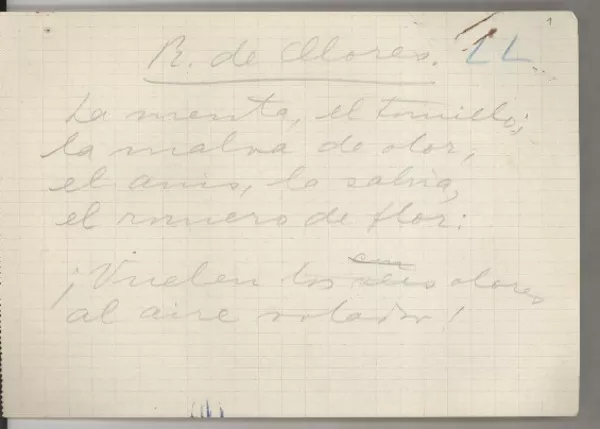 R. de Olores. LL
La menta, el tomillo,
la malva de olor,
el anís, la salvia,
el romero de flor:
em
¡Vuelen los seis olores
al aire volador!